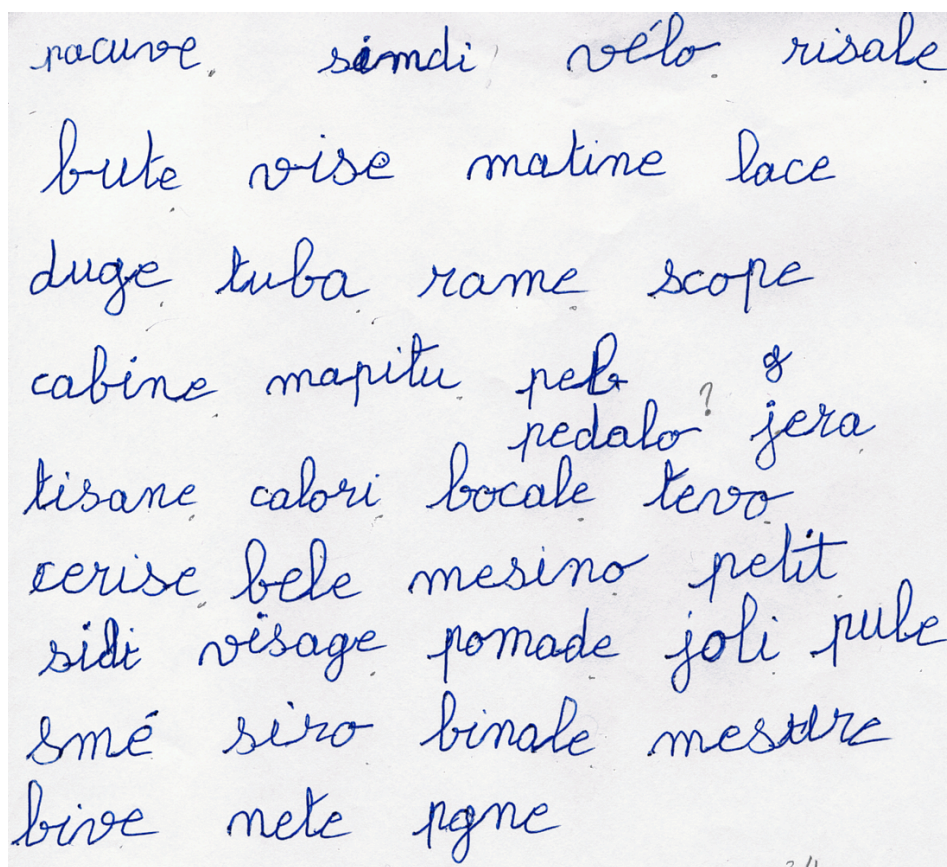 racuve simdi vélo risale
bute vise matine lace
duge tuba rame scope
cabine mapitu pelo 8
pedalo ? jera
tisane calori bocale tevo
cerise bele mesino petit
sidi visage pomade joli pube
smé siro binale mesure
bive nete pgne